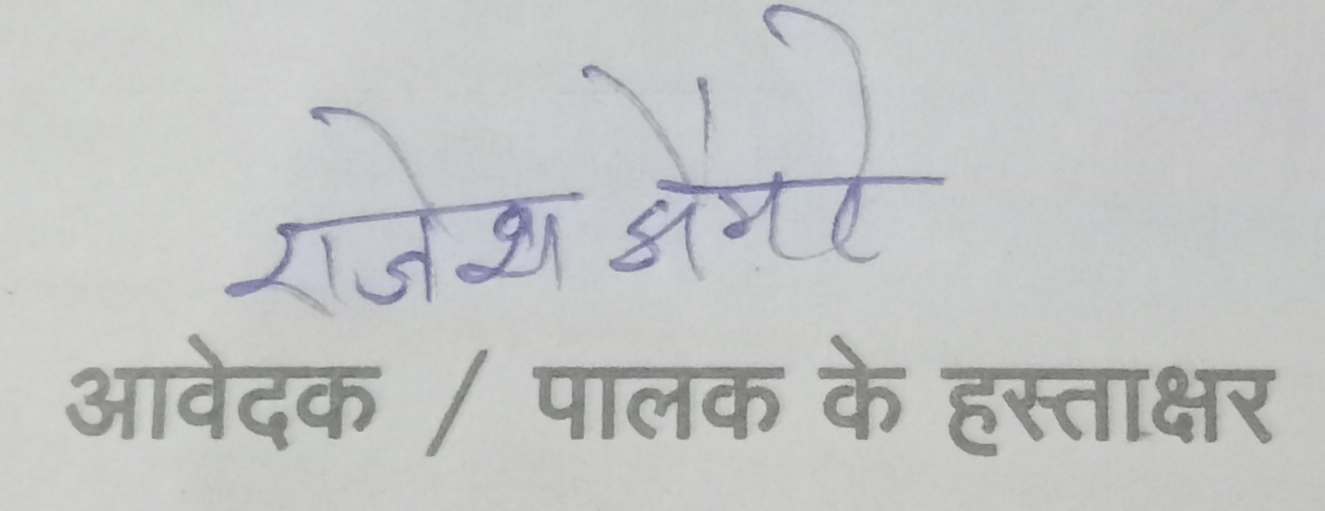 राजेश
आवेदक / पालक के हस्ताक्षर